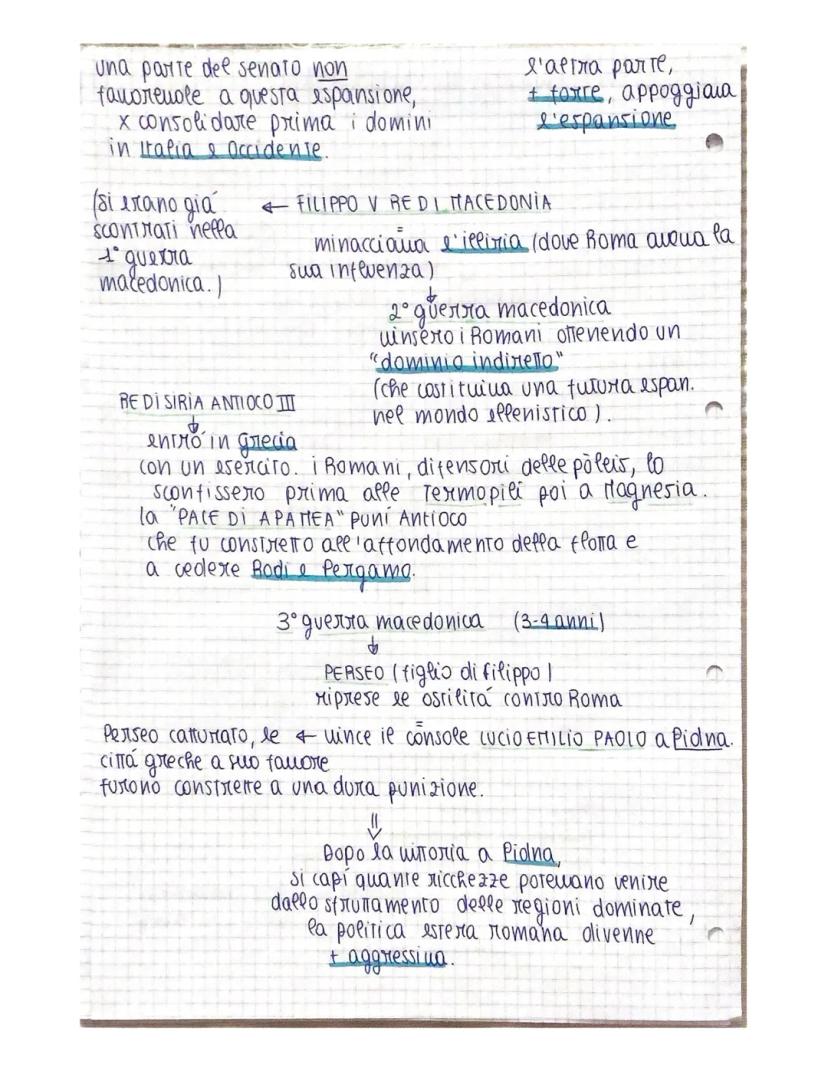 una parte del senato non
favorevole a questa espansione,
x consolidare prima i domini
in Italia e Occidente.
l'altra parte,
+ forte, appoggiava
l'espansione
(si erano già
scontrati nella
1° guerra
macedonica.)
← FILIPPO V RE DI MACEDONIA
minacciava l'illiria (dove Roma aveva la
sua influenza)
↓
2° guerra macedonica
vinsero i Romani ottenendo un
"dominio indiretto"
(che costituiva una futura espan.
nel mondo ellenistico).
RE DI SIRIA ANTIOCO III
↓
entrò in grecia
con un esercito. i Romani, difensori delle pòleis, lo
sconfissero prima alle Termopili poi a Magnesia.
la "PACE DI APAMEA" punì Antioco
che fu constretto all'affondamento della flotta e
a cedere Rodi e Pergamo.
3° guerra macedonica (3-4 anni)
↓
PERSEO (figlio di filippo)
riprese le ostilità contro Roma
Perseo catturato, le ← vince il console LUCIO EMILIO PAOLO a Pidna.
città greche a suo favore
furono constrette a una dura punizione.
⇓
Dopo la vittoria a Pidna,
si capì quante ricchezze potevano venire
dallo sfruttamento delle regioni dominate,
la politica estera romana divenne
+ aggressiva.